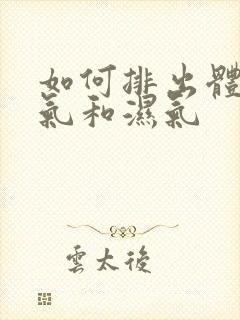 如何排出體
氣和濕氣
雲太後